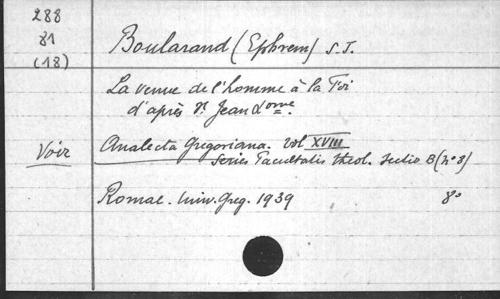 288
81
(18)
Boularand (Ephrem) S.J.
La venue de l'homme à la Foi
d'après St Jean Chrme.
Voir
Analecta Gregoriana. Vol XVIII
Series Facultatis theol. Sectio B (n° 8)
Romae. Univ. Greg. 1939 8°